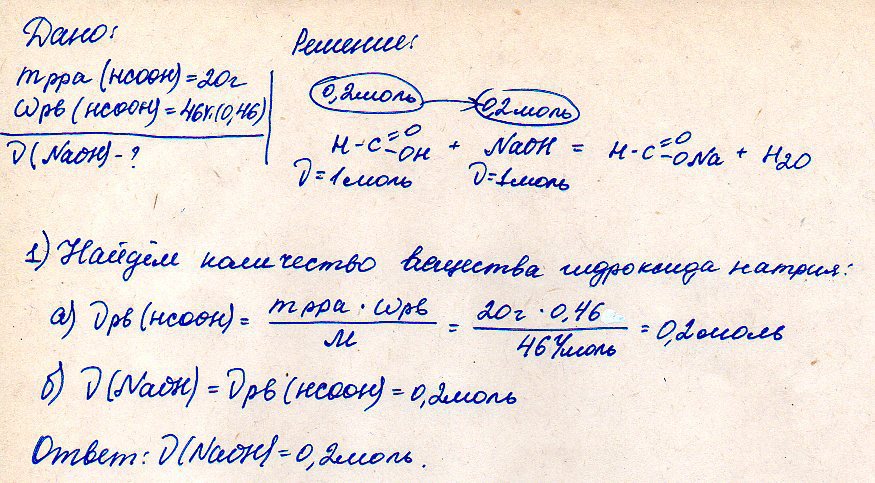 Дано:
mрра (HCOOH) = 20г
ωрв (HCOOH) = 46%(0,46)
ν(NaOH) - ?
Решение:
0,2моль → 0,2моль
H-C=O-OH + NaOH = H-C=O-ONa + H2O
ν=1моль ν=1моль
1) Найдём количество вещества гидроксида натрия:
а) νрв(HCOOH) = mрра · ωрв / M = 20г · 0,46 / 46г/моль = 0,2моль
б) ν(NaOH) = νрв(HCOOH) = 0,2моль
Ответ: ν(NaOH) = 0,2моль.